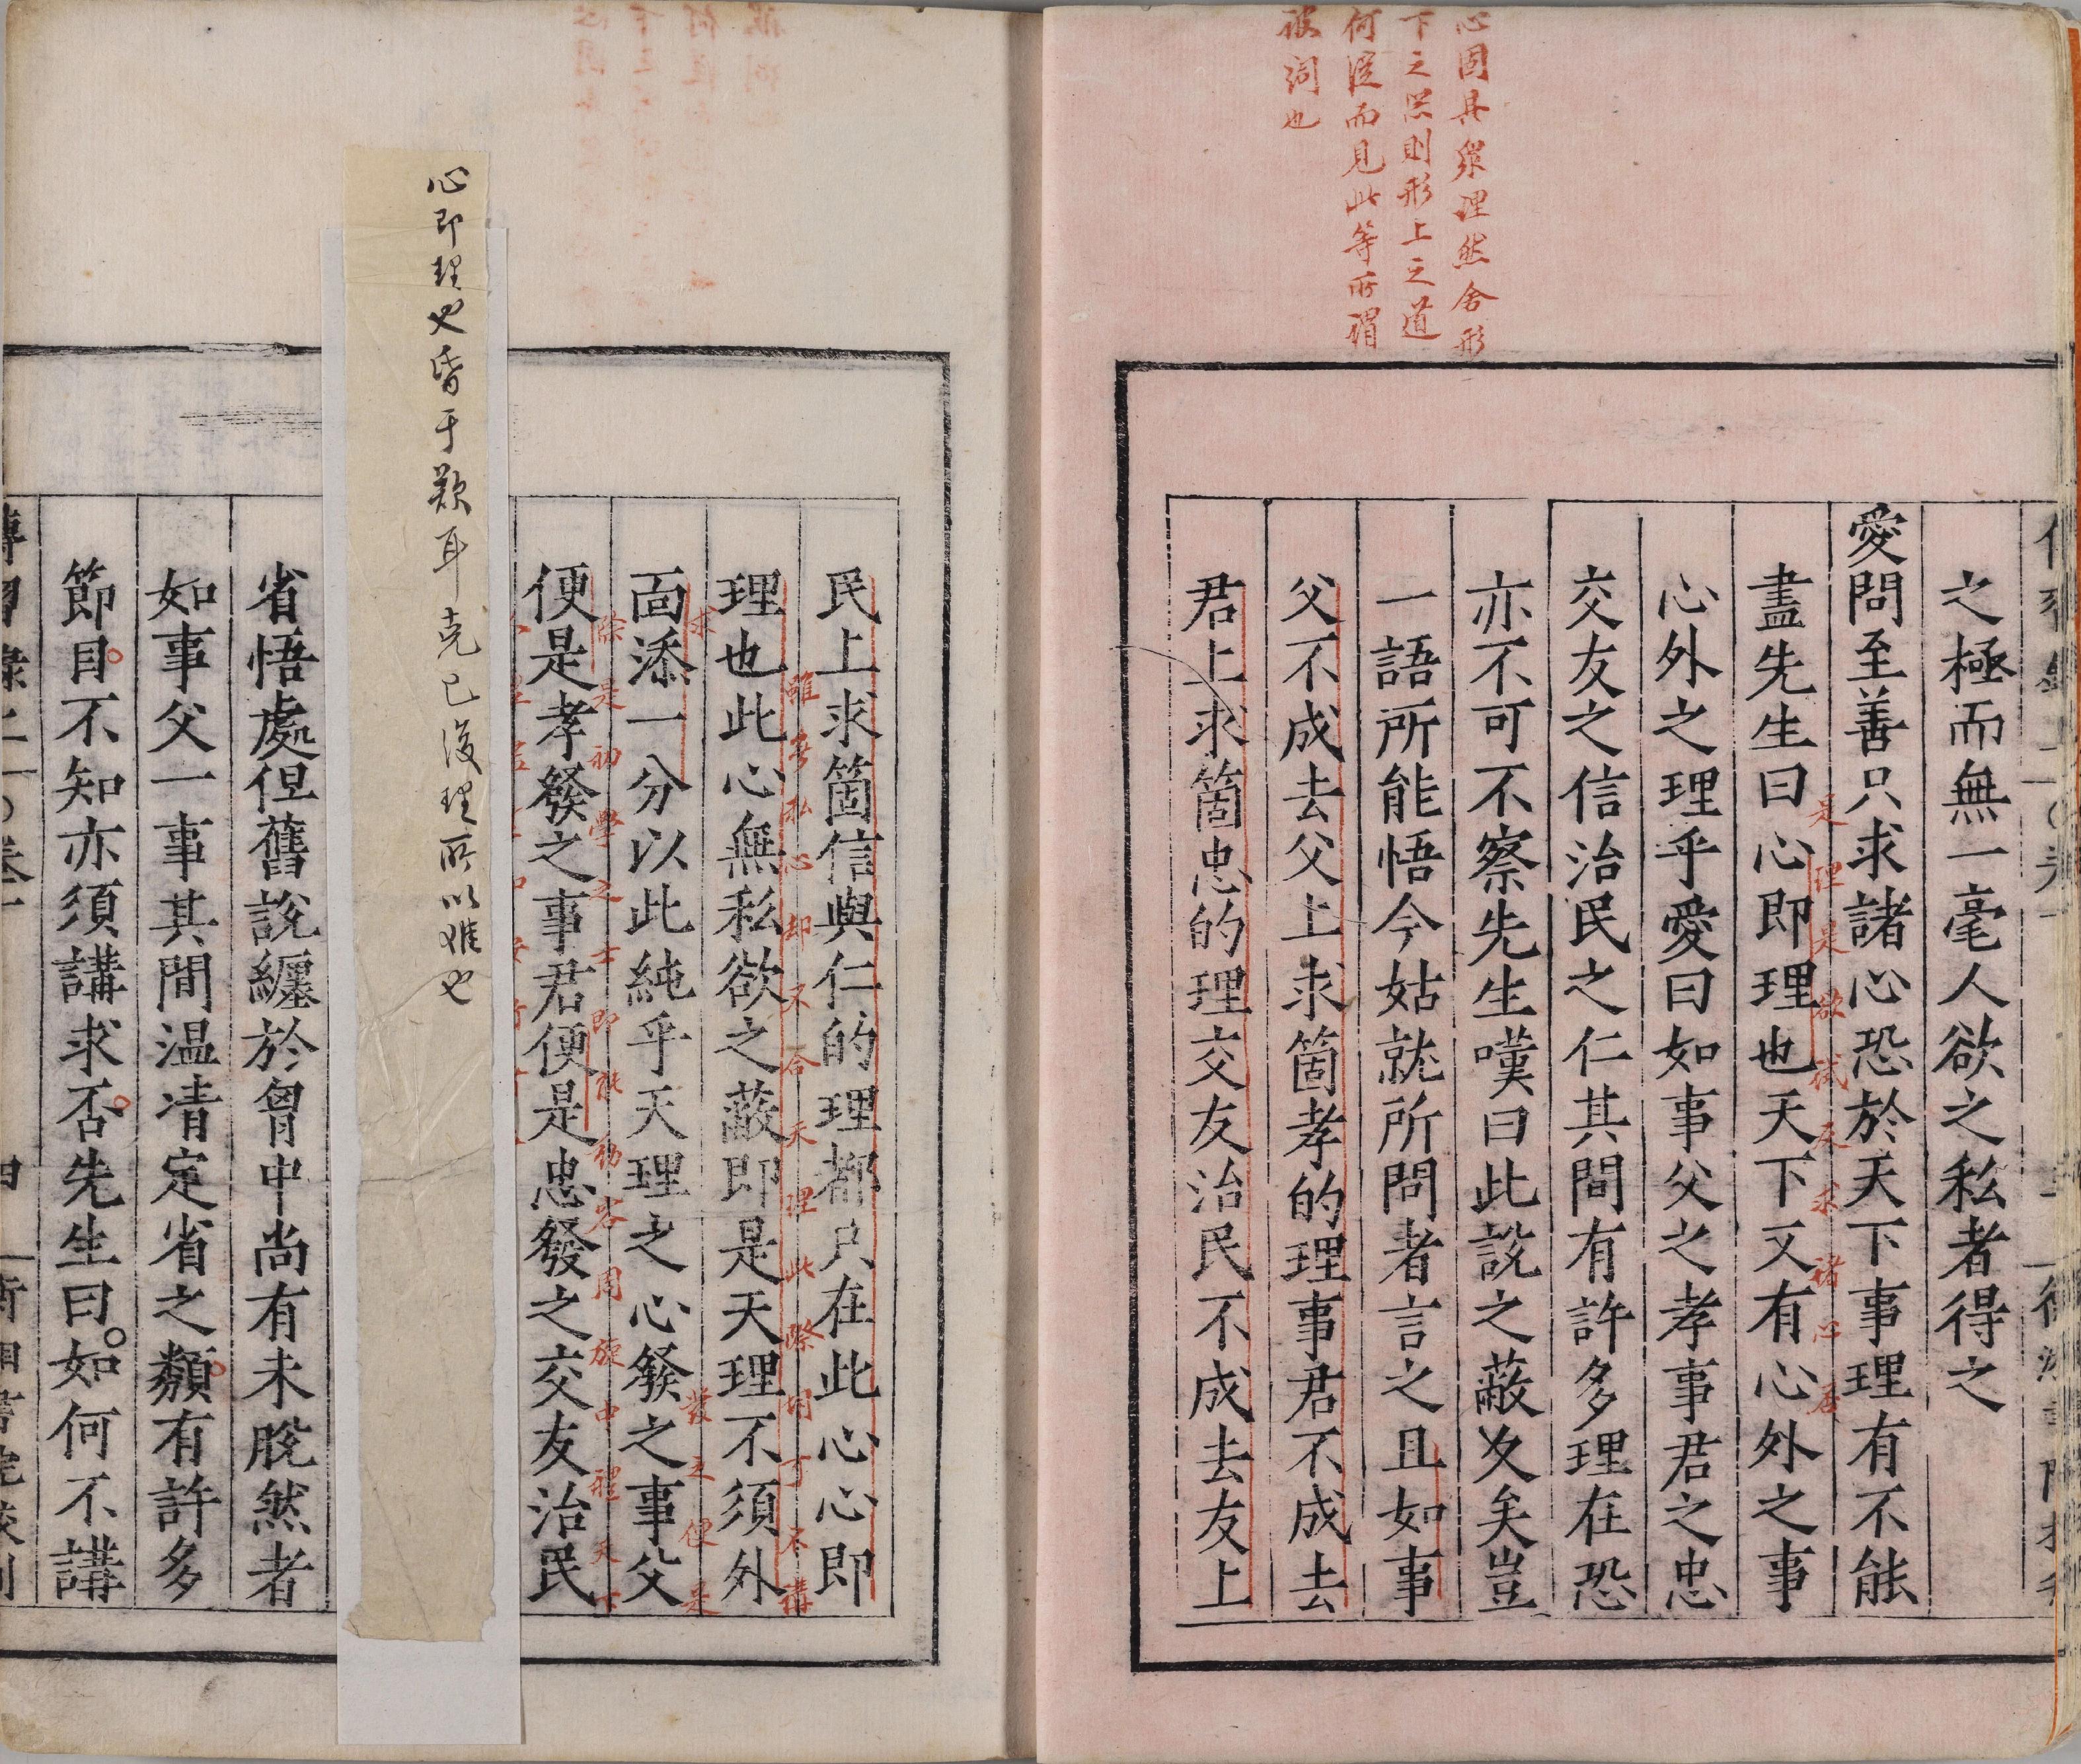 心固具衆理然舍形
下之器則形上之道
何從而見此等所謂
詖詞也
之極而無一毫人欲之私者得之
愛問至善只求諸心恐於天下事理有不能
是理是欲試反求諸心君
盡先生曰心即理也天下又有心外之事
心外之理乎愛曰如事父之孝事君之忠
交友之信治民之仁其間有許多理在恐
亦不可不察先生嘆曰此說之蔽久矣豈
一語所能悟今姑就所問者言之且如事
父不成去父上求箇孝的理事君不成去
君上求箇忠的理交友治民不成去友上
民上求箇信與仁的理都只在此心心即
雖無私心却不合天理此際用丁不講
理也此心無私欲之蔽即是天理不須外
求
面添一分以此純乎天理之心發之事父
發之便是
除是初學之士即能動容周旋中禮天下
便是孝發之事君便是忠發之交友治民
心即理也昏于欺耳克己復理所以難也
省悟處但舊說纏於胷中尚有未脫然者
如事父一事其間温凊定省之類有許多
節目不知亦須講求否先生曰如何不講
傳習錄上
卷一
四